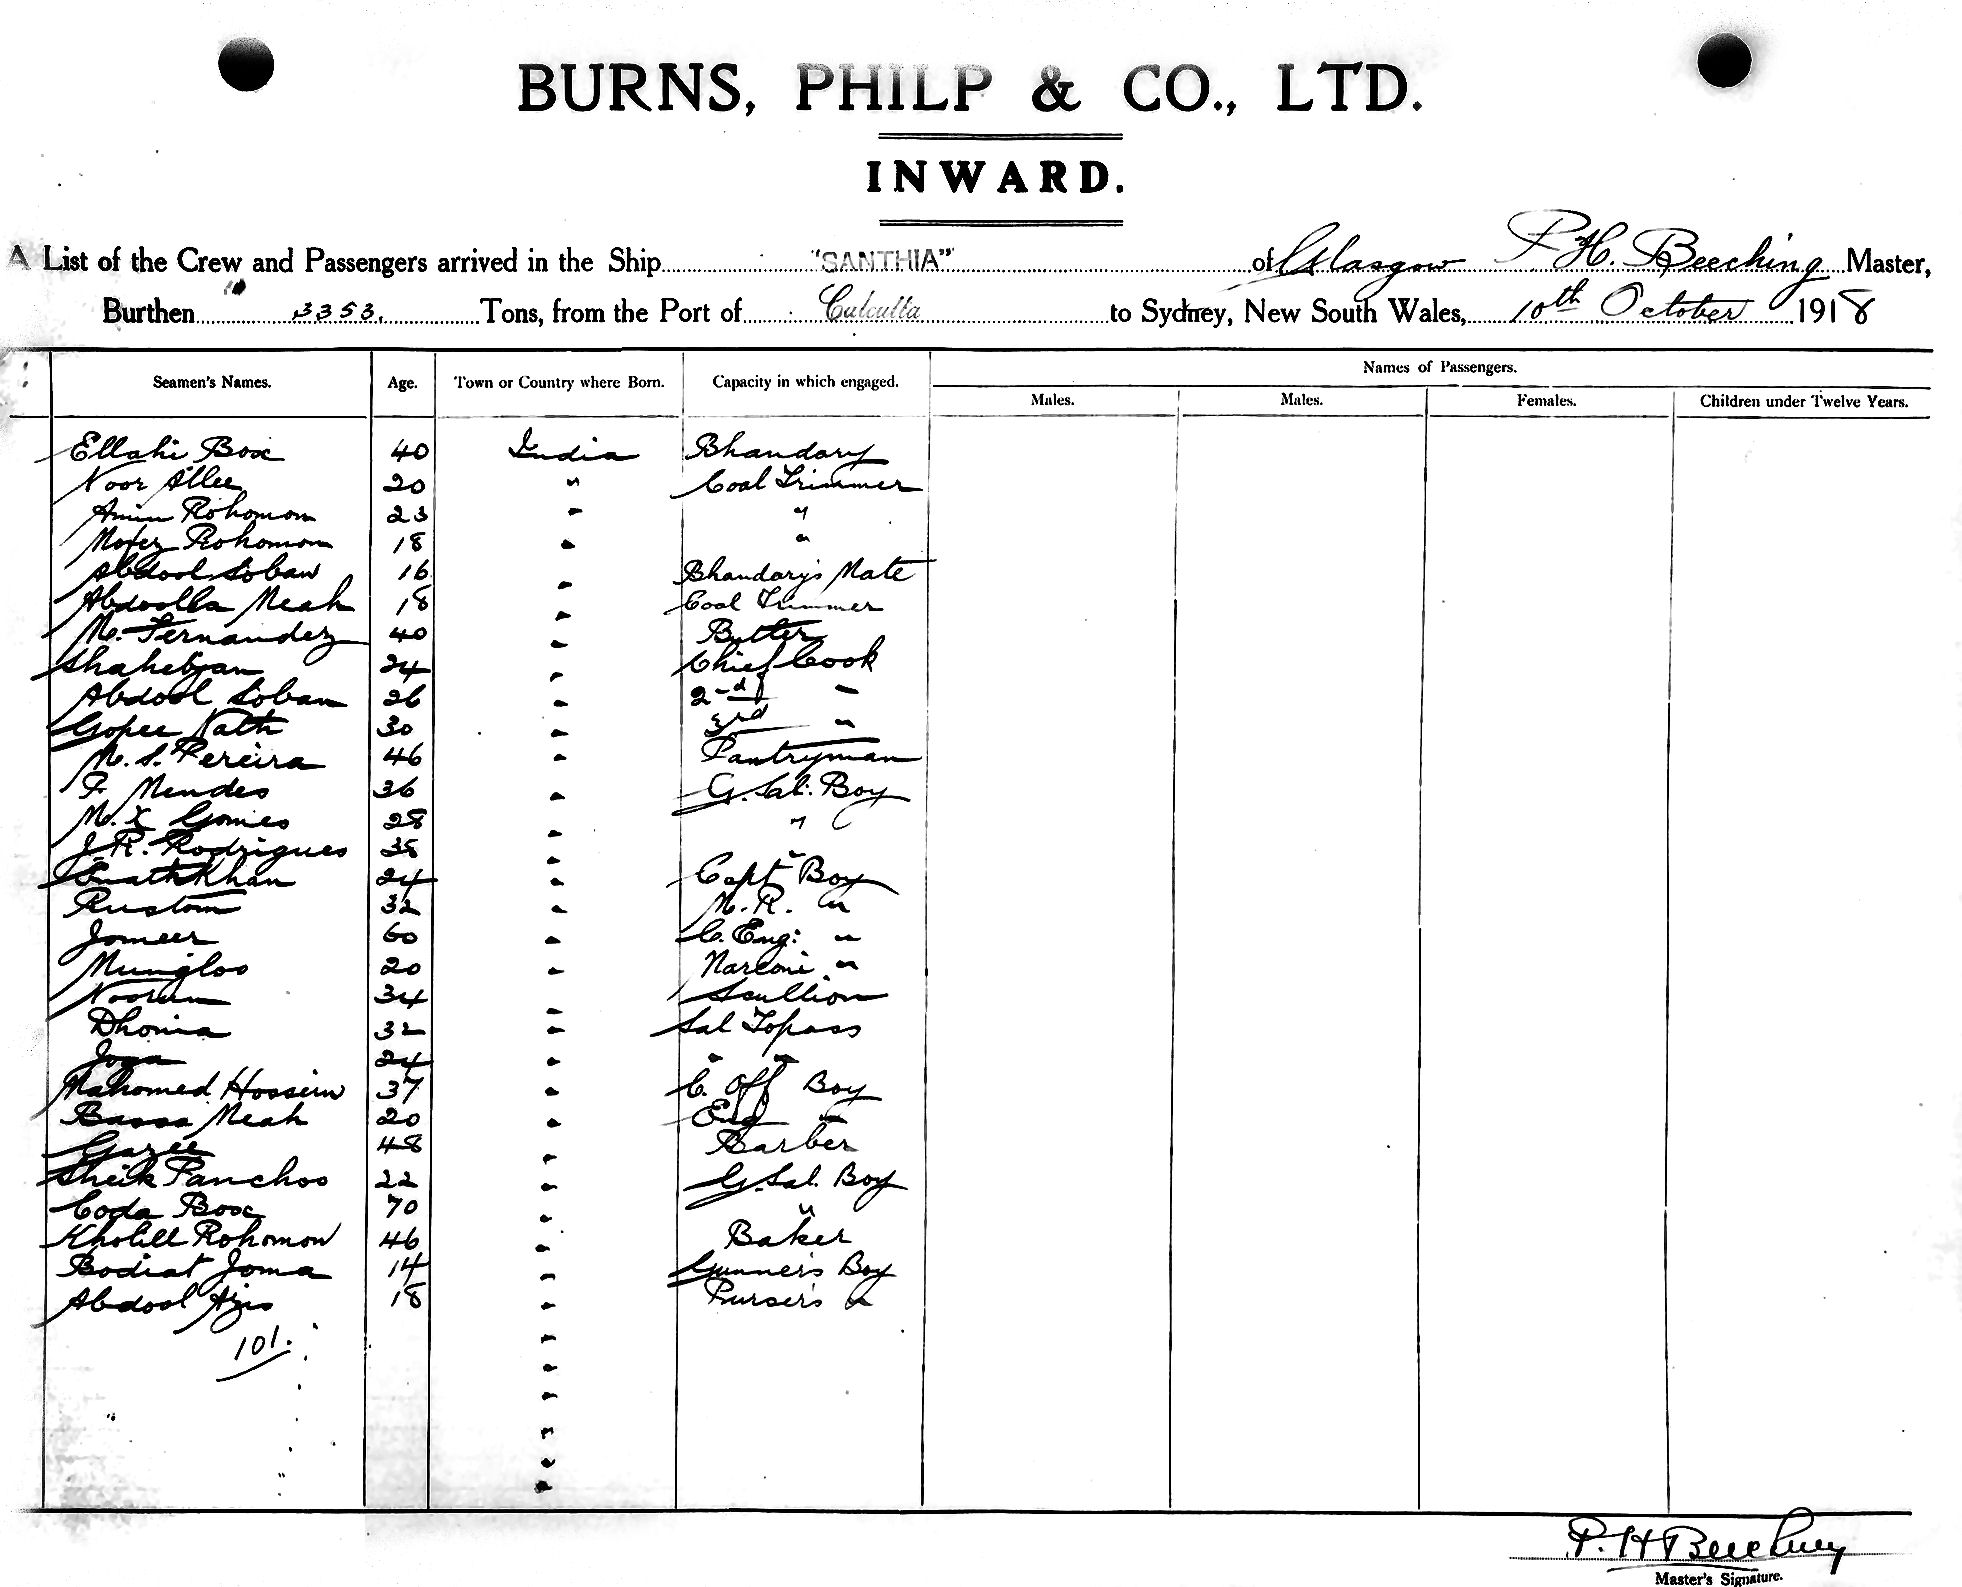 BURNS, PHILP & CO., LTD.
INWARD.
A List of the Crew and Passengers arrived in the Ship "SANTHIA" of Glasgow P. H. Beeching Master,
Burthen 3353. Tons, from the Port of Calcutta to Sydney, New South Wales, 10th October 1918
Names of Passengers.
Seamen's Names. Age. Town or Country where Born. Capacity in which engaged. Males. Males. Females. Children under Twelve Years.
Ellahi Box 40 India Bhandary
Noor Allee 20 " Coal Trimmer
Amin Rohomon 23 " "
Mofez Rohomon 18 " "
Abdool Soban 16 " Bhandary's Mate
Abdoolla Meah 18 " Coal Trimmer
M. Fernandez 40 " Butler
Shahebjan 24 " Chief Cook
Abdool Soban 26 " 2nd "
Gopee Nath 30 " 3rd "
M. S. Pereira 46 " Pantryman
F. Mendes 36 " G. Sal. Boy
M. X Gomes 28 " "
J. R. Rodrigues 38 " "
Khan 24 " Capt Boy
Rustom 32 " M. R. "
Jomeer 60 " C. Eng: "
Mungloo 20 " Marconi "
Noorun 34 " Scullion
Dhonia 32 " Sal Topass
Joga 24 " " "
Mahomed Hossein 37 " C. Off Boy
Bassa Meah 20 " Eng "
Gazee 48 " Barber
Sheik Panchoo 22 " G. Sal. Boy
Coda Box 70 " "
Kholill Rohomon 46 " Baker
Bodiat Joma 14 " Gunner's Boy
Abdool Azis 18 " Purser's "
101.
P. H Beeching
Master's Signature.